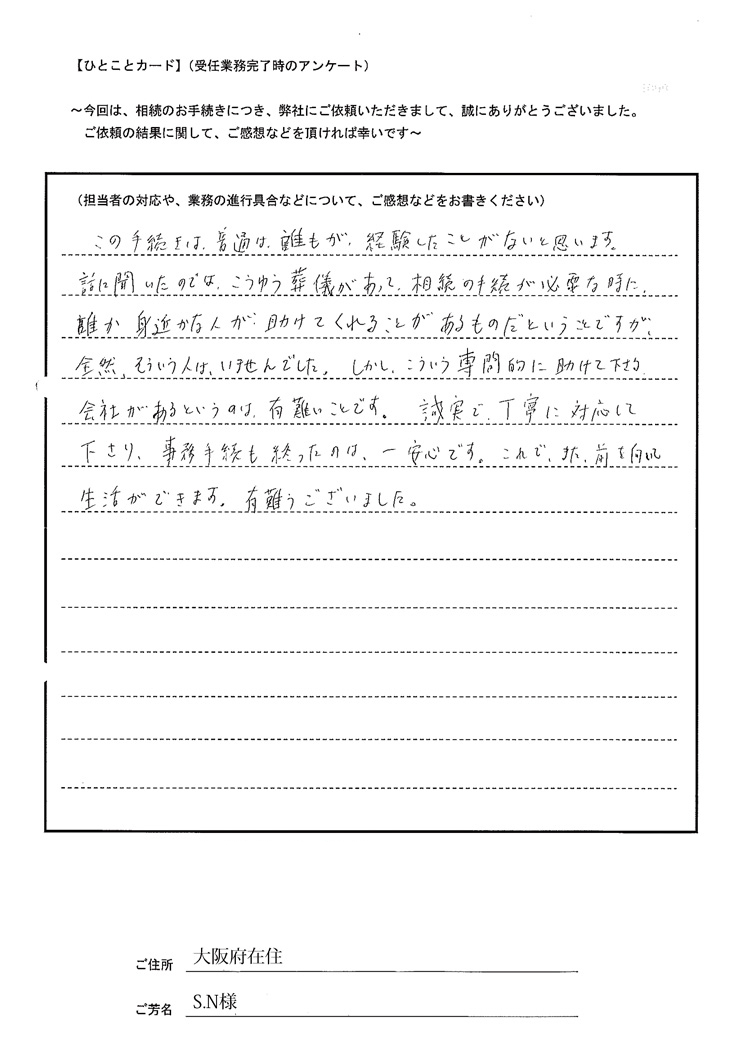 【ひとことカード】（受任業務完了時のアンケート）
～今回は、相続のお手続きにつき、弊社にご依頼いただきまして、誠にありがとうございました。
ご依頼の結果に関して、ご感想などを頂ければ幸いです～
（担当者の対応や、業務の進行具合などについて、ご感想などをお書きください）
この手続きは、普通は、誰もが、経験したことがないと思います。
話に聞いたのでは、こうゆう葬儀があって、相続の手続が必要な時に、
誰か身近かな人が、助けてくれることがあるものだということですが、
全然、そういう人は、いませんでした。しかし、こういう専門的に助けて下さる
会社があるというのは、有難いことです。誠実で、丁寧に対応して
下さり、事務手続も終ったのは、一安心です。これで、また、前を向いた
生活ができます。有難うございました。
ご住所 大阪府在住
ご芳名 S.N様